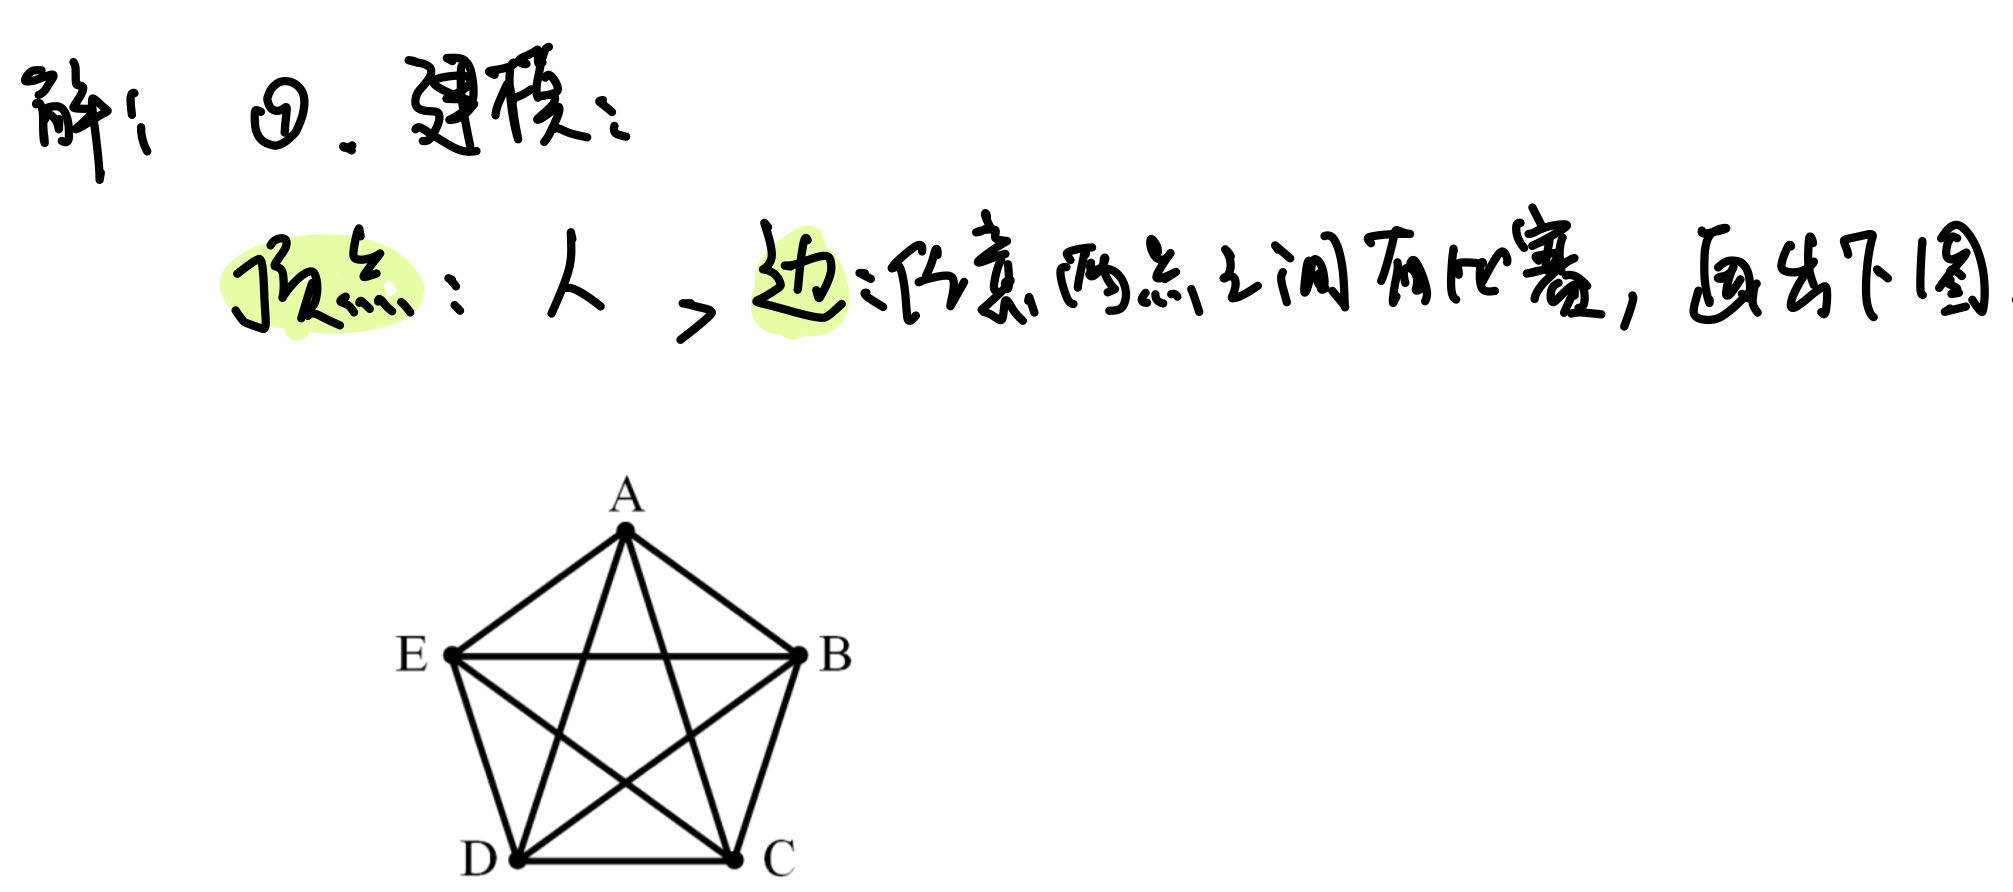 解: ①. 建模:
顶点: 人, 边: 任意两点之间有比赛, 画出下图.
A
E B
D C